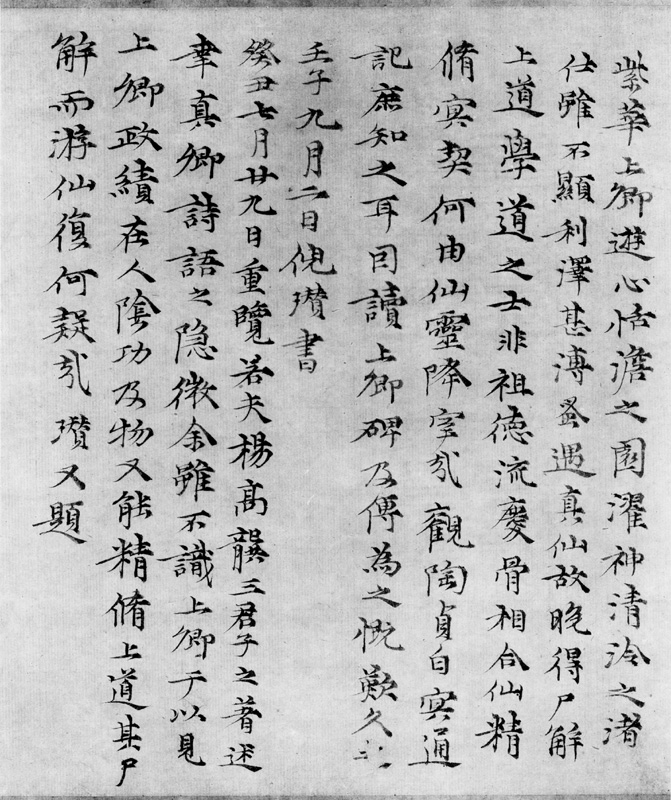 紫華上卿遊心恬澹之園濯神清泠之渚
仕雖不顯利澤甚溥蚤遇真仙故晚得尸解
上道學道之士非祖德流慶骨相合仙精
脩冥契何由仙靈降室哉觀陶貞白冥通
記庶知之耳因讀上卿碑及傳為之慨歎久之
壬子九月二日倪瓚書
癸丑七月廿九日重覽若夫楊高龔三君子之著述
韋真卿詩語之隱微余雖不識上卿于以見
上卿政績在人陰功及物又能精脩上道其尸
解而游仙復何疑哉瓚又題